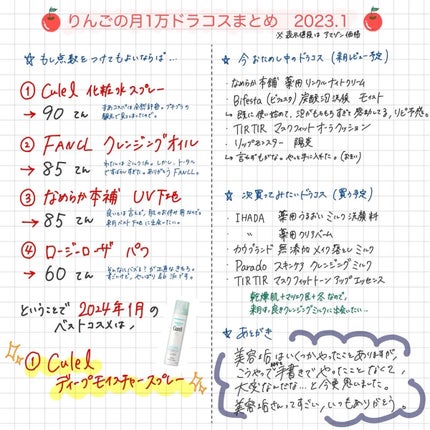 りんごの月1万ドラコスまとめ 2023.1
※表示価格は アマゾン価格
☆ もし点数をつけてもよいならば…
① Curel 化粧水スプレー
→ 90 てん
② FANCL クレンジングオイル
→ 85 てん
③ なめらか本舗 UV下地
→ 85 てん
④ ロージーローザ パフ
→ 60 てん
ということで 2024年1月の
ベストコスメは、
① Curel
ディープモイスチャースプレー
☆ 今おためし中のドラコス (来月レビュー予定)
・なめらか本舗 薬用リンクルナイトクリーム
・Bifesta (ビフェスタ) 炭酸泡洗顔 モイスト
・TIRTIR マスクフィットオーラクッション
・リップモンスター 陽炎
☆ 次買ってみたいドラコス (買う予定)
・IHADA 薬用うるおいミルク洗顔料
・ 〃 薬用クリアバーム
・カウブランド 無添加メイク落としミルク
・Parado スキンケアクレンジングミルク
・TIRTIR マスクフィットトーンアップエッセンス
乾燥肌+マツエク民+冬なので、
来月は、良きクレンジングミルクに出会いたい…
☆ あとがき
美容垢はいくつかやったことありますが、
こうやって手書きでやったことなくて、
大変なんだな…と今更思いました。
美容垢さんってすごい、いつもありがとう。